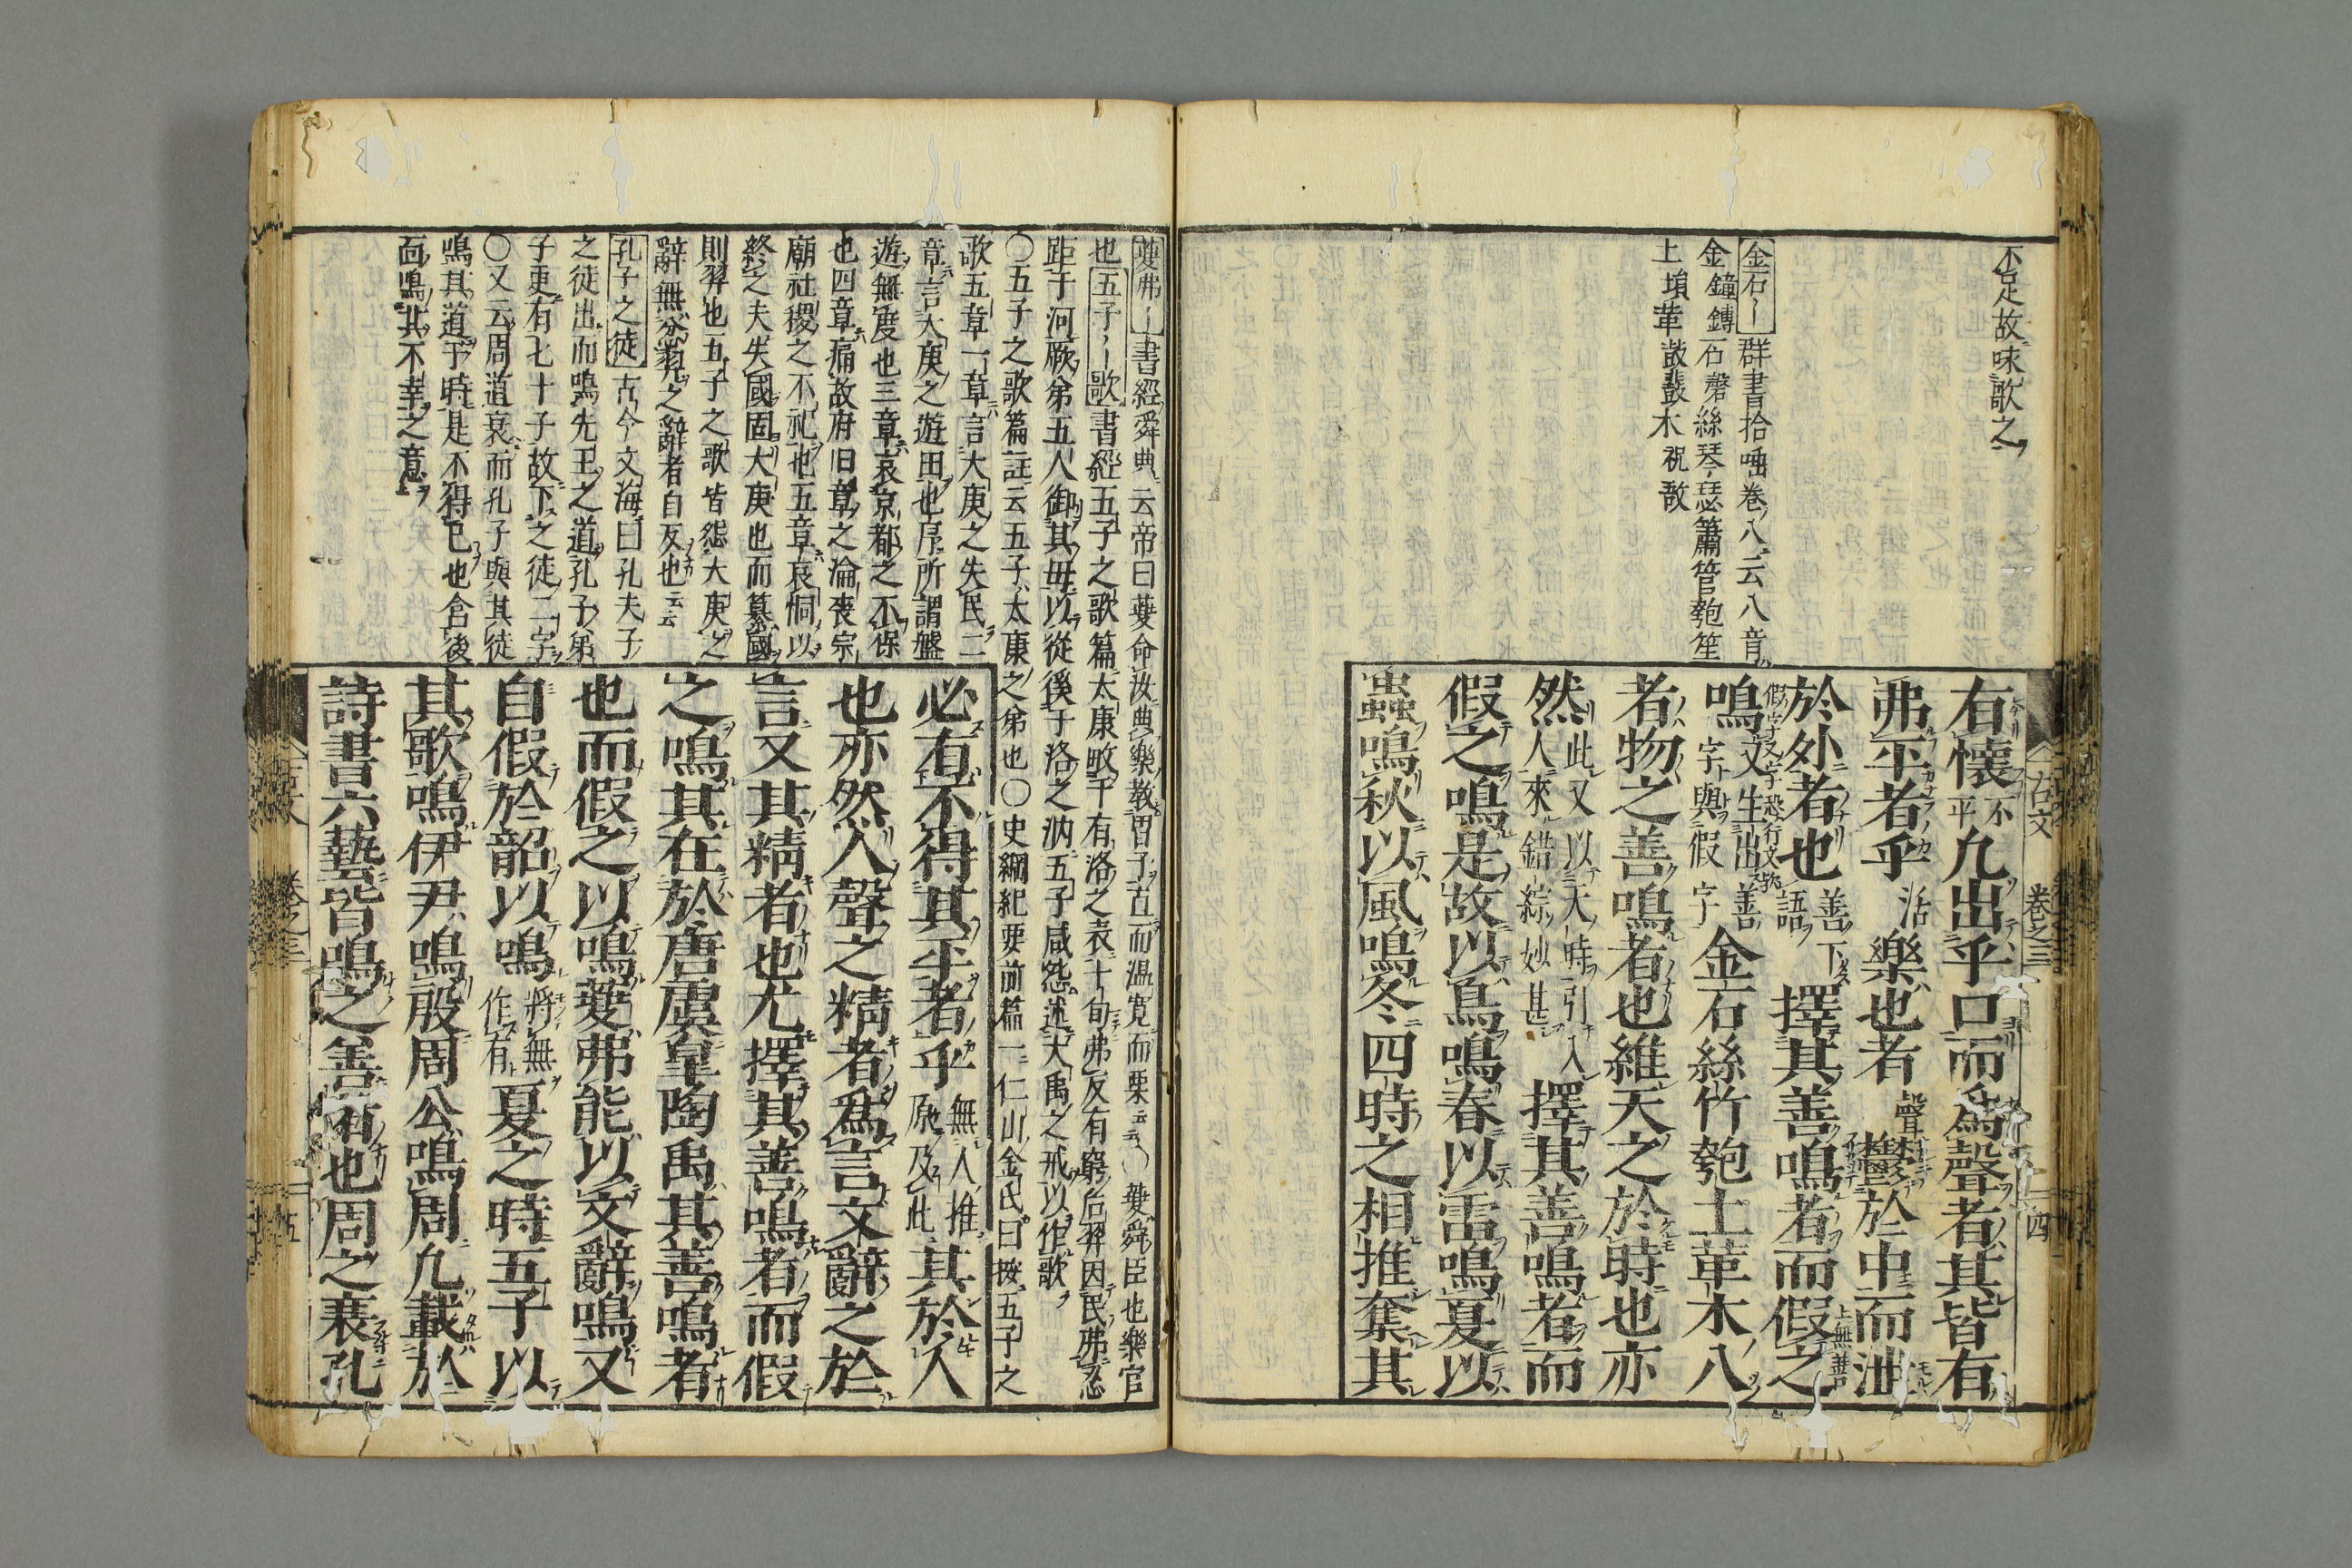 不足故味歌之
金石〻群書拾唾卷八云八音
金鐘鏄石磬絲琴瑟簫管匏笙
土塤革鼓鼗木柷敔
古文 卷之三 四
有懷不平凢出乎口而爲聲者其皆有
弗平者乎活樂也者聲鬱於中而泄
於外者也善下語擇其善鳴者而假之
上無善
假字又字恐行文弥
鳴又生出善字與假字金石絲竹匏土革木八
者物之善鳴者也維天之於時也亦
然此又以天時引入人來錯綜妙甚擇其善鳴者而
假之鳴是故以鳥鳴春以雷鳴夏以
蟲鳴秋以風鳴冬四時之相推奪其
夔弗〻書經舜典云帝曰夔命汝典樂敎胄子直而温寛而栗云云夔舜臣也樂官
也五子〻歌書經五子之歌篇太康畋于有洛之表十旬弗反有窮后羿因民弗忍
距于河厥弟五人御其母以從徯于洛之汭五子咸怨述大禹之戒以作歌
〇五子之歌篇註云五子太康之弟也〇史綱紀要前篇一仁山金氏曰按五子之
歌五章一章言大庚之失民二
章言大庚之遊田也序所謂盤
遊無度也三章哀京都之不保
也四章痛故府旧章之淪喪宗
廟社稷之不祀也五章哀恫以
終之夫失國固大庚也而簒國
則羿也五子之歌皆怨大庚之
辭無忿羿之辭者自反也云云
孔子之徒古今文海曰孔夫子
之徒出而鳴先王之道孔子弟
子更有七十子故下之徒二字
〇又云周道衰而孔子與其徒
鳴其道于時是不得已也含後
面鳴其不幸之意
必有不得其平者乎無人推原及此其於人
也亦然人聲之精者爲言文辭之於
言又其精者也尤擇其善鳴者而假
之鳴其在於唐虞皐陶禹其善鳴者
也而假之以鳴夔弗能以文辭鳴又
自假於韶以鳴將無作有夏之時五子以
其歌鳴伊尹鳴殷周公鳴周凢載於
詩書六藝皆鳴之善者也周之衰孔
古文 卷之三 五